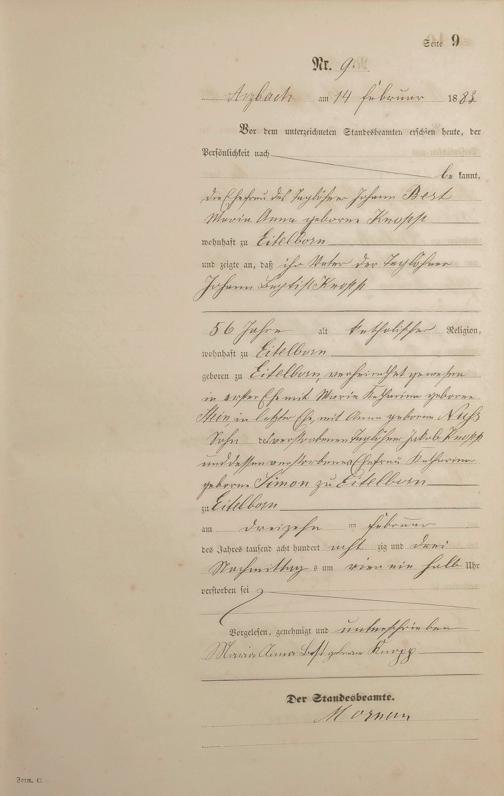 Seite 9
Nr. 9.
Arzbach am 14 Februar 1883
Vor dem unterzeichneten Standesbeamten erschien heute, der
Persönlichkeit nach
be kannt,
die Ehefrau des Taglöhner Johann Best
Maria Anna geborne Knopp
wohnhaft zu Eitelborn
und zeigte an, daß ihr Vater der Taglöhner
Johann Baptist Knopp
56 Jahre alt katholischer Religion,
wohnhaft zu Eitelborn
geboren zu Eitelborn, verheirathet gewesen
in erster Ehe mit Maria Katharina geborne
in letzter Ehe mit Anna geborne
Sohn des verstorbenen Taglöhner Jakob Knopp
und dessen verstorbene Ehefrau Katharina
geborne Simon zu Eitelborn
zu Eitelborn
am dreizehn Februar
des Jahres tausend acht hundert acht zig und drei
Nachmittag s um vier ein halb Uhr
verstorben sei
Vorgelesen, genehmigt und unterschrieben
Maria Anna Best geborne Knopp
Der Standesbeamte.
Form. C.